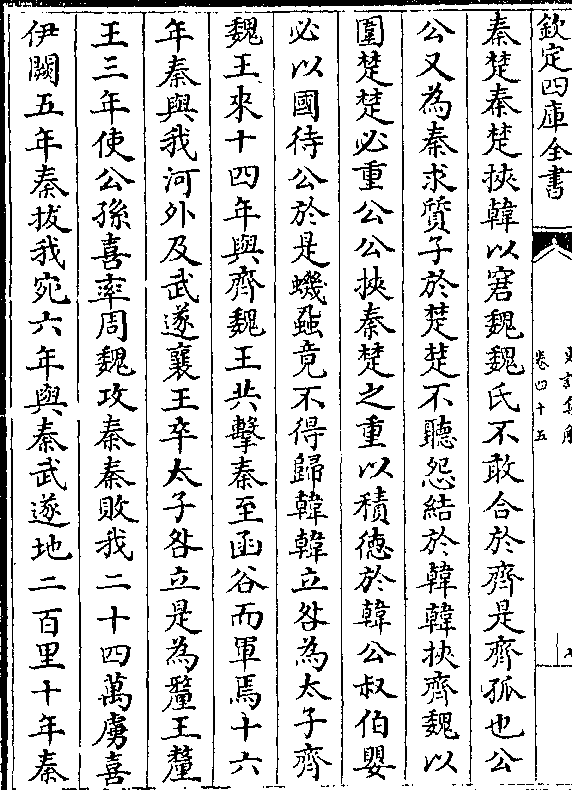 欽定四庫全書
卷四十五
秦楚秦楚挾韓以窘魏魏氏不敢合於齊是齊孤也公
公又為秦求質子於楚楚不聽怨結於韓韓挾齊魏以
圍楚楚必重公公挾秦楚之重以積德於韓公叔伯嬰
必以國待公於是蟣蝨竟不得歸韓韓立咎為太子齊
魏王來十四年與齊魏王共擊秦至函谷而軍焉十六
年秦與我河外及武遂襄王卒太子咎立是為釐王釐
王三年使公孫喜率周魏攻秦秦敗我二十四萬虜喜
伊闕五年秦拔我宛六年與秦武遂地二百里十年秦